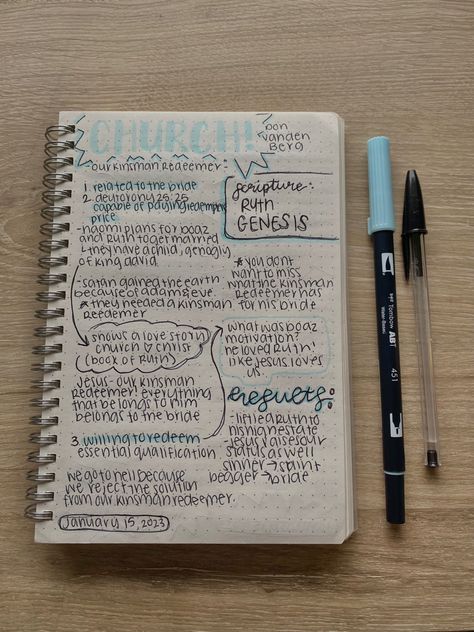 CHURCH!
Don
Vanden
Berg
-our kinsman redeemer:
1. related to the bride
2. deutorony 25:25
capable of paying redemption
price
-naomi plans for boaz
and Ruth to get married
they have a child, genology
of king david
-satan gained the earth
because of adam & eve
* they needed a kinsman
redeemer
shows a love story
church & christ
(book of Ruth)
Jesus-our kinsman
redeemer! everything
that belongs to him
belongs to the bride
3. willing to redeem
essential qualification
we go to hell because
we reject the solution
from our kinsman redeemer.
January 15, 2023
Scripture:
RUTH
GENESIS
* you dont
want to miss
what the kinsman
redeemer has
for his bride
what was boaz
motivation?
he loved Ruth!
like Jesus loves
us.
Results:
-lifted Ruth to
his high estate
-Jesus raises our
status as well
sinner → saint
beggar → bride
Tombow ABT
451